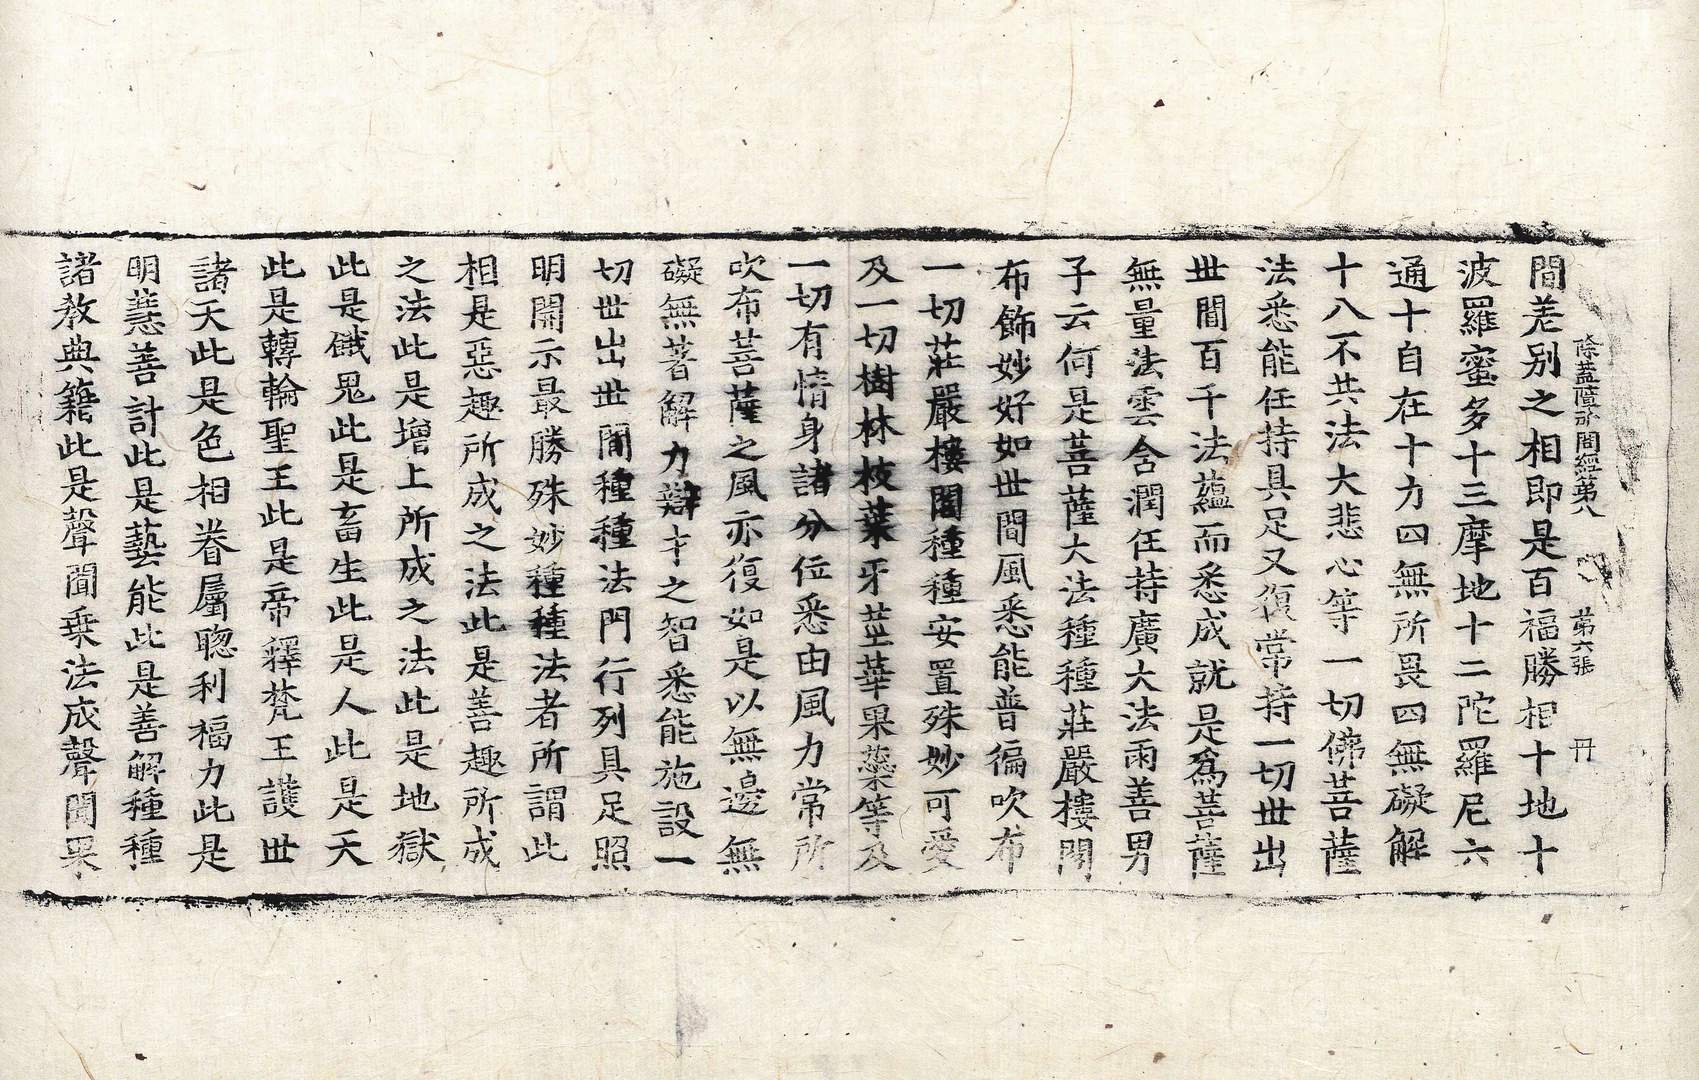 除蓋障所問經第八　第六張　冊
間差別之相即是百福勝相十地十
波羅蜜多十三摩地十二陀羅尼六
通十自在十力四無所畏四無礙解
十八不共法大悲心等一切佛菩薩
法悉能任持具足又復常持一切世出
世間百千法蘊而悉成就是爲菩薩
無量法雲含潤任持廣大法雨善男
子云何是菩薩大法種種莊嚴樓閣
布飾妙好如世間風悉能普徧吹布
一切莊嚴樓閣種種安置殊妙可愛
及一切樹林枝葉牙莖華果蘂等及
一切有情身諸分位悉由風力常所
吹布菩薩之風亦復如是以無邊無
礙無著解力辯才之智悉能施設一
切世出世間種種法門行列具足照
明開示最勝殊妙種種法者所謂此
相是惡趣所成之法此是善趣所成
之法此是增上所成之法此是地獄
此是餓鬼此是畜生此是人此是天
此是轉輪聖王此是帝釋梵王護世
諸天此是色相眷屬聰利福力此是
明慧善計此是藝能此是善解種種
諸教典籍此是聲聞乗法成聲聞果